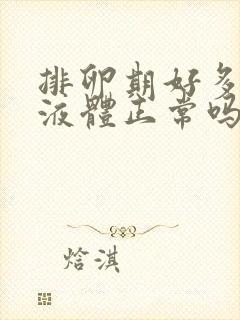 排卵期好多
液體正常吗
焓淇